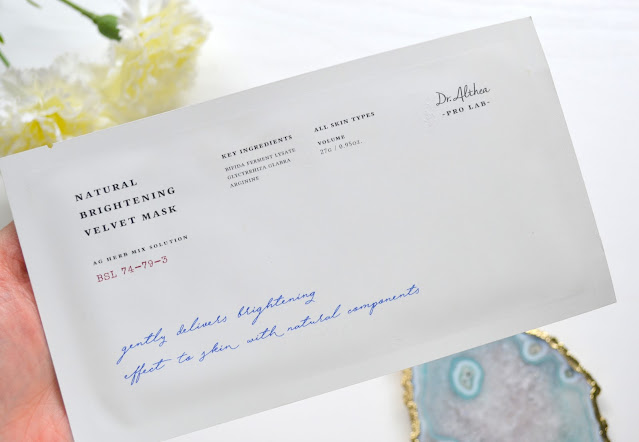 NATURAL
BRIGHTENING
VELVET MASK
AG HERB MIX SOLUTION
BSL 74-79-3
KEY INGREDIENTS
BIFIDA FERMENT LYSATE
GLYCYRRHIZA GLABRA
ARGININE
ALL SKIN TYPES
VOLUME
27g / 0.95oz.
Dr. Althea
-PRO LAB-
gently delivers brightening
effect to skin with natural components